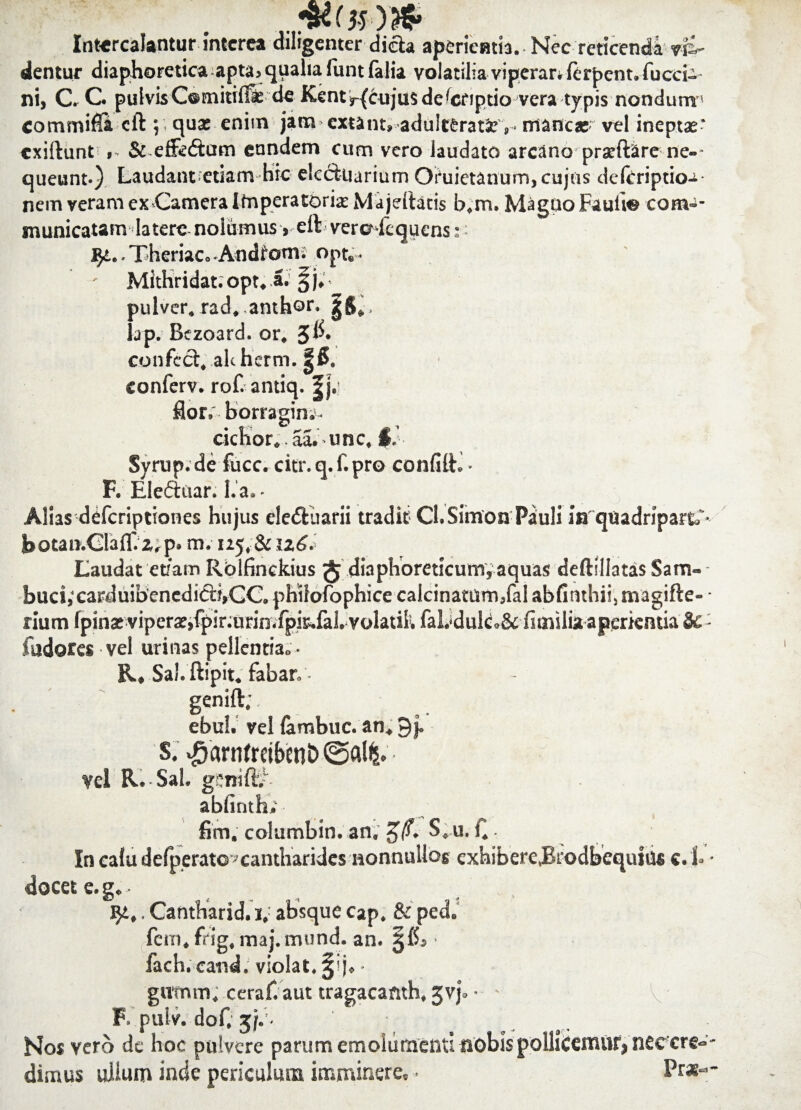 (35)
Intercalantur interea diligenter dicta aperientia. Nec reticenda vi-
dentur diaphoretica apta, qualia sunt salia volatilia viperar. serpent. succi-
ni, C. C. pulvis Comitissæ de Kent, (cujus descriptio vera typis nondum
commissa est; quæ enim jam extant, adulteratæ, mancæ vel ineptæ
existunt, & effectum eundem cum vero laudato arcano præstare ne-
queunt.) Laudant etiam hic electuarium Oruietanum, cujus descriptio-
nem veram ex Camera Imperatoriæ Majestatis b.m. Magno Faulio com-
municatam latere nolumus, est vero sequens:
℞. Theriac. Androm. opt.
Mithridat. opt. ā. ℥j.
pulver. rad. anthor. ℥ß.
lap. Bezoard. or. ʒß.
confect. alkherm. ℥ß.
conserv. ros. antiq. ℥j.
flor. borragin.
cichor. āā. unc. ß.
Syrup. de succ. citr. q. s. pro consist.
F. Electuar. l. a.
Alias descriptiones hujus electuarii tradit Cl. Simon Pauli in quadripart.
botan. Class. 2. p. m. 125. & 126.
Laudat etiam Rolfinckius ☿ diaphoreticum, aquas destillatas Sam-
buci, carduibenedicti, CC. philosophice calcinatum, sal absinthii, magiste-
rium spinæ viperæ, spir. urin. spir. sal. volatil. sal. dulc. & similia aperientia &
sudores vel urinas pellentia.
R. Sal. stipit. fabar.
genist.
ebul. vel sambuc. an. ℈j.
S. Harntreibend Saltz.
vel R. Sal. genist.
absinth.
fim. columbin. an. ʒß. S. u. s.
In casu desperato cantharides nonnullos exhibere, Brodbequius c. l.
docet e. g.
℞. Cantharid. 1. absque cap. & ped.
sem. frig. maj. mund. an. ℥ß,
sach. cand. violat. ℥ij.
gumm. ceras. aut tragacanth. ʒvj.
F. pulv. dos. ʒj.
Nos vero de hoc pulvere parum emolumenti nobis pollicemur, nec cre-
dimus ullum inde periculum imminere.
Præ-